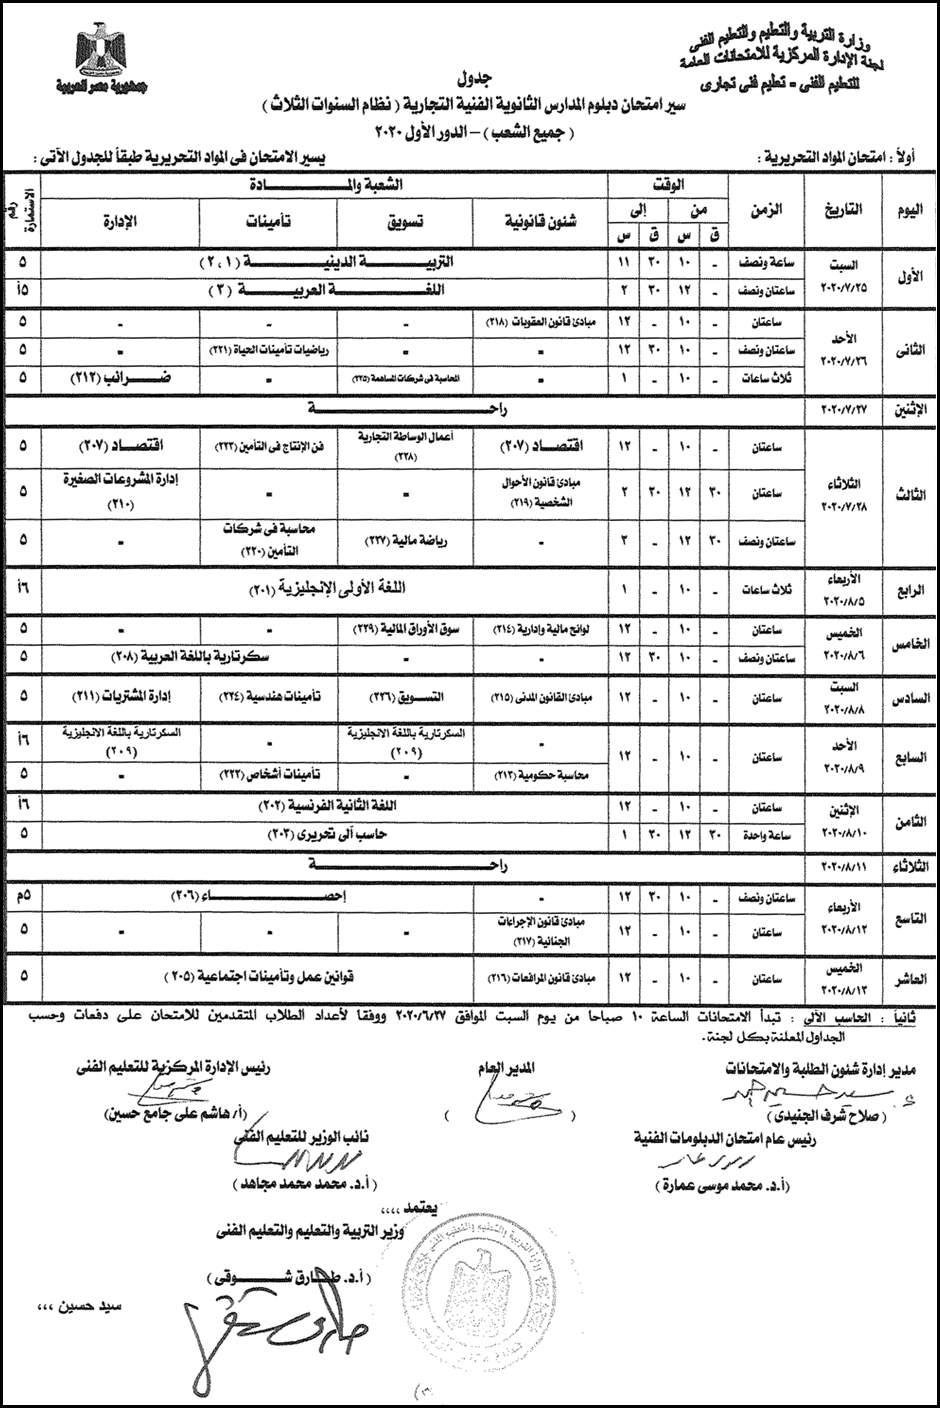 وزارة التربية والتعليم والتعليم الفنى
لجنة الإدارة المركزية للامتحانات العامة
للتعليم الفنى - تعليم فنى تجارى
جمهورية مصر العربية
جدول
سير امتحان دبلوم المدارس الثانوية الفنية التجارية ( نظام السنوات الثلاث )
( جميع الشعب ) - الدور الأول ٢٠٢٠
أولاً : امتحان المواد التحريرية : يسير الامتحان فى المواد التحريرية طبقاً للجدول الآتى :
اليوم التاريخ الزمن الوقت الشعبة والمــــــادة رقم الاستمارة
من إلى شئون قانونية تسويق تأمينات الإدارة
ق س ق س
الأول السبت ٢٠٢٠/٧/٢٥ ساعة ونصف - ١٠ ٣٠ ١١ التربيــــة الدينيــــة (١،٢) ٥
ساعتان ونصف - ١٢ ٣٠ ٢ اللغــــة العربيــــة (٣) ٥أ
الثانى الأحد ٢٠٢٠/٧/٢٦ ساعتان - ١٠ - ١٢ مبادئ قانون العقوبات (٢١٨) - - - ٥
ساعتان ونصف - ١٠ ٣٠ ١٢ - - رياضيات تأمينات الحياة (٢٢١) - ٥
ثلاث ساعات - ١٠ - ١ - المحاسبة فى شركات المساهمة (٢٢٥) - ضــرائب (٢١٢) ٥
الإثنين ٢٠٢٠/٧/٢٧ راحــــــــة
الثالث الثلاثاء ٢٠٢٠/٧/٢٨ ساعتان - ١٠ - ١٢ اقتصــاد (٢٠٧) أعمال الوساطة التجارية (٢٢٨) فن الإنتاج فى التأمين (٢٢٣) اقتصــاد (٢٠٧) ٥
ساعتان ٣٠ ١٢ ٣٠ ٢ مبادئ قانون الأحوال الشخصية (٢١٩) - - إدارة المشروعات الصغيرة (٢١٠) ٥
ساعتان ونصف ٣٠ ١٢ - ٣ - رياضة مالية (٢٢٧) محاسبة فى شركات التأمين (٢٢٠) - ٥
الرابع الأربعاء ٢٠٢٠/٨/٥ ثلاث ساعات - ١٠ - ١ اللغة الأولى الإنجليزية (٢٠١) ٦أ
الخامس الخميس ٢٠٢٠/٨/٦ ساعتان - ١٠ - ١٢ لوائح مالية وإدارية (٢١٤) سوق الأوراق المالية (٢٢٩) - - ٥
ساعتان ونصف - ١٠ ٣٠ ١٢ - - سكرتارية باللغة العربية (٢٠٨) ٥
السادس السبت ٢٠٢٠/٨/٨ ساعتان - ١٠ - ١٢ مبادئ القانون المدنى (٢١٥) التسويق (٢٢٦) تأمينات هندسية (٢٢٤) إدارة المشتريات (٢١١) ٥
السابع الأحد ٢٠٢٠/٨/٩ ساعتان - ١٠ - ١٢ - السكرتارية باللغة الإنجليزية (٢٠٩) - السكرتارية باللغة الإنجليزية (٢٠٩) ٦أ
محاسبة حكومية (٢١٣) - تأمينات أشخاص (٢٢٢) - ٥
الثامن الإثنين ٢٠٢٠/٨/١٠ ساعتان - ١٠ - ١٢ اللغة الثانية الفرنسية (٢٠٢) ٦أ
ساعة واحدة ٣٠ ١٢ ٣٠ ١ حاسب آلى تحريرى (٢٠٣) ٥
الثلاثاء ٢٠٢٠/٨/١١ راحــــــــة
التاسع الأربعاء ٢٠٢٠/٨/١٢ ساعتان ونصف - ١٠ ٣٠ ١٢ - إحصــــاء (٢٠٦) ٥م
ساعتان - ١٠ - ١٢ مبادئ قانون الإجراءات الجنائية (٢١٧) - - - ٥
العاشر الخميس ٢٠٢٠/٨/١٣ ساعتان - ١٠ - ١٢ مبادئ قانون المرافعات (٢١٦) قوانين عمل وتأمينات اجتماعية (٢٠٥) ٥
ثانياً : الحاسب الألى : تبدأ الامتحانات الساعة ١٠ صباحا من يوم السبت الموافق ٢٠٢٠/٦/٢٧ ووفقا لأعداد الطلاب المتقدمين للامتحان على دفعات وحسب
الجداول المعلنة بكل لجنة.
مدير إدارة شئون الطلبة والامتحانات المدير العام رئيس الإدارة المركزية للتعليم الفنى
(صلاح شرف الجنيدى) ( ) (أ/ هاشم على جامع حسين)
رئيس عام امتحان الدبلومات الفنية نائب الوزير للتعليم الفنى
(أ.د. محمد موسى عمارة) (أ.د. محمد محمد مجاهد)
يعتمد ،،،،
وزير التربية والتعليم والتعليم الفنى
(أ.د. طــارق شــــوقى)
سيد حسين ،،،